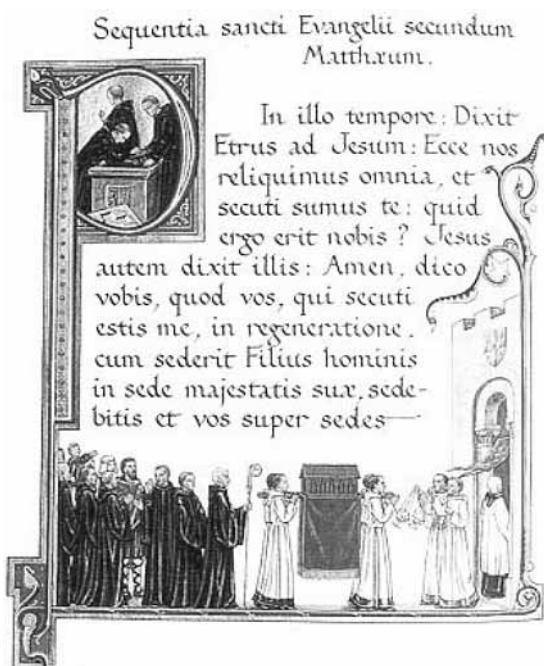 Sequentia sancti Evangelii secundum
Matthæum.
In illo tempore: Dixit
PEtrus ad Jesum: Ecce nos
reliquimus omnia, et
secuti sumus te: quid
ergo erit nobis? Jesus
autem dixit illis: Amen, dico
vobis, quod vos, qui secuti
estis me, in regeneratione,
cum sederit Filius hominis
in sede majestatis suæ, sede-
bitis et vos super sedes—